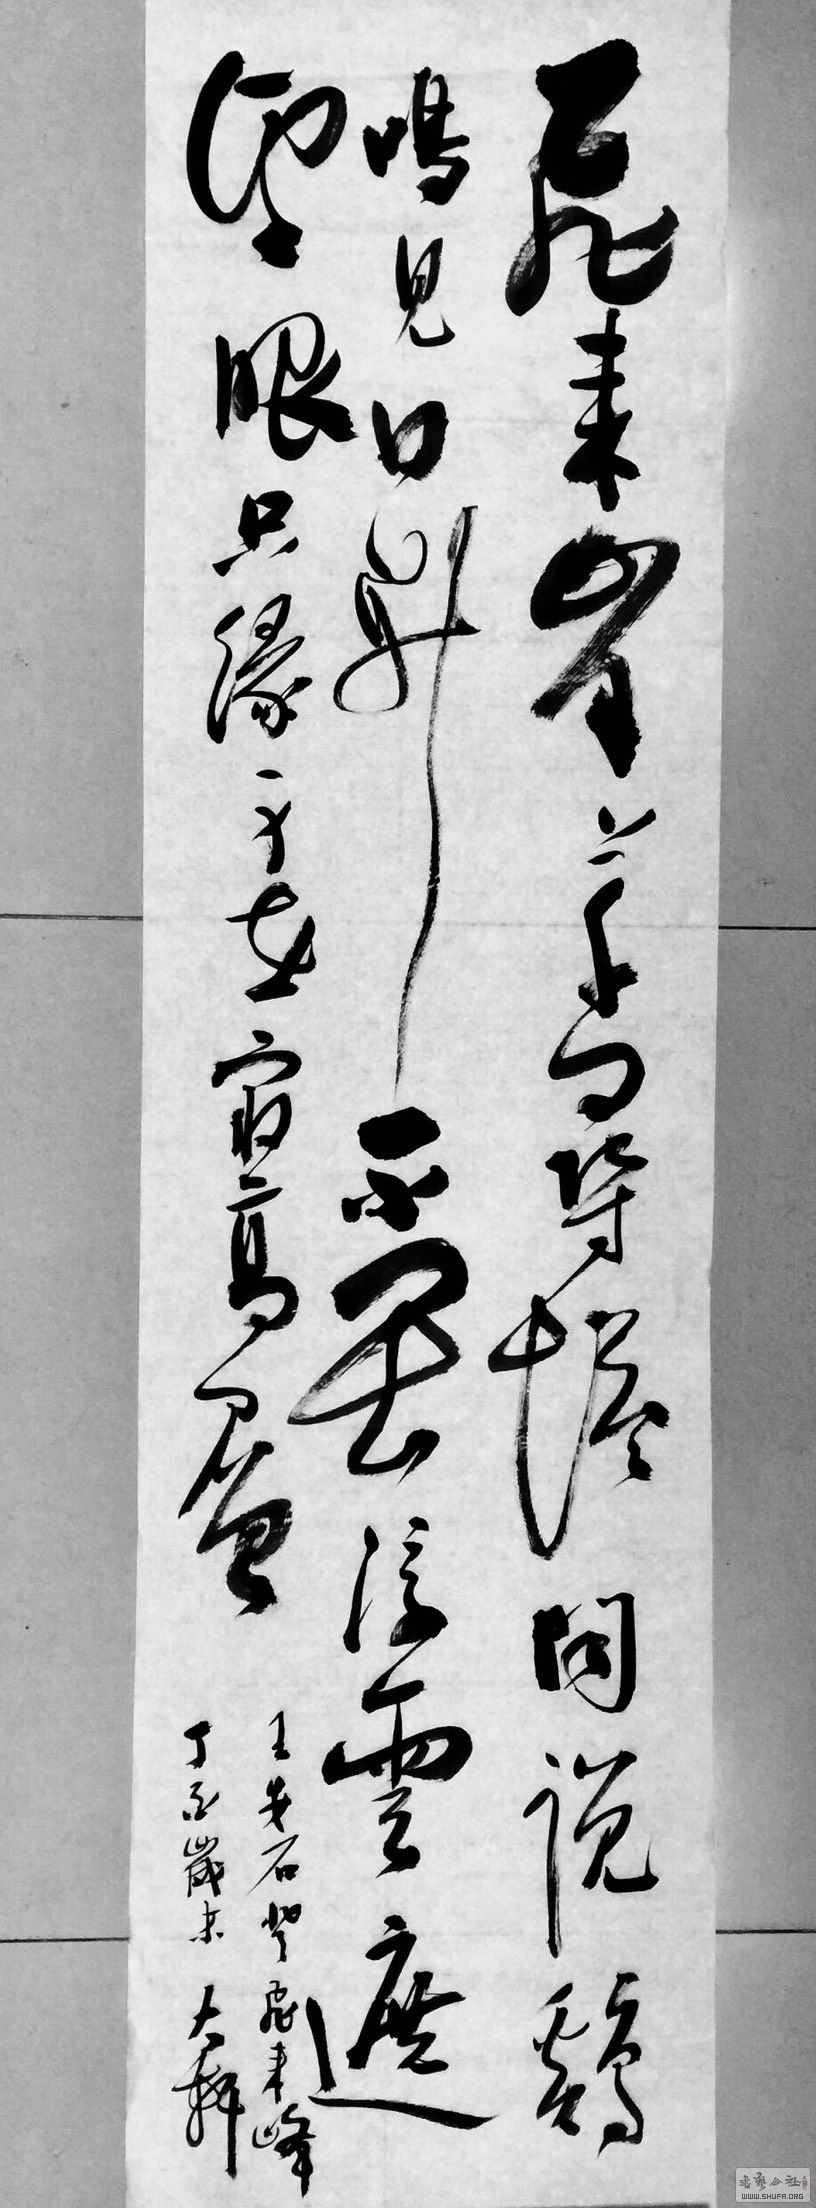 飛来峯上千尋塔聞說雞
鳴見日昇不畏浮雲遮
望眼只緣身在最高層
王安石登飛来峰
丁酉歲末 大
書藝公社
WWW.SHUFA.ORG